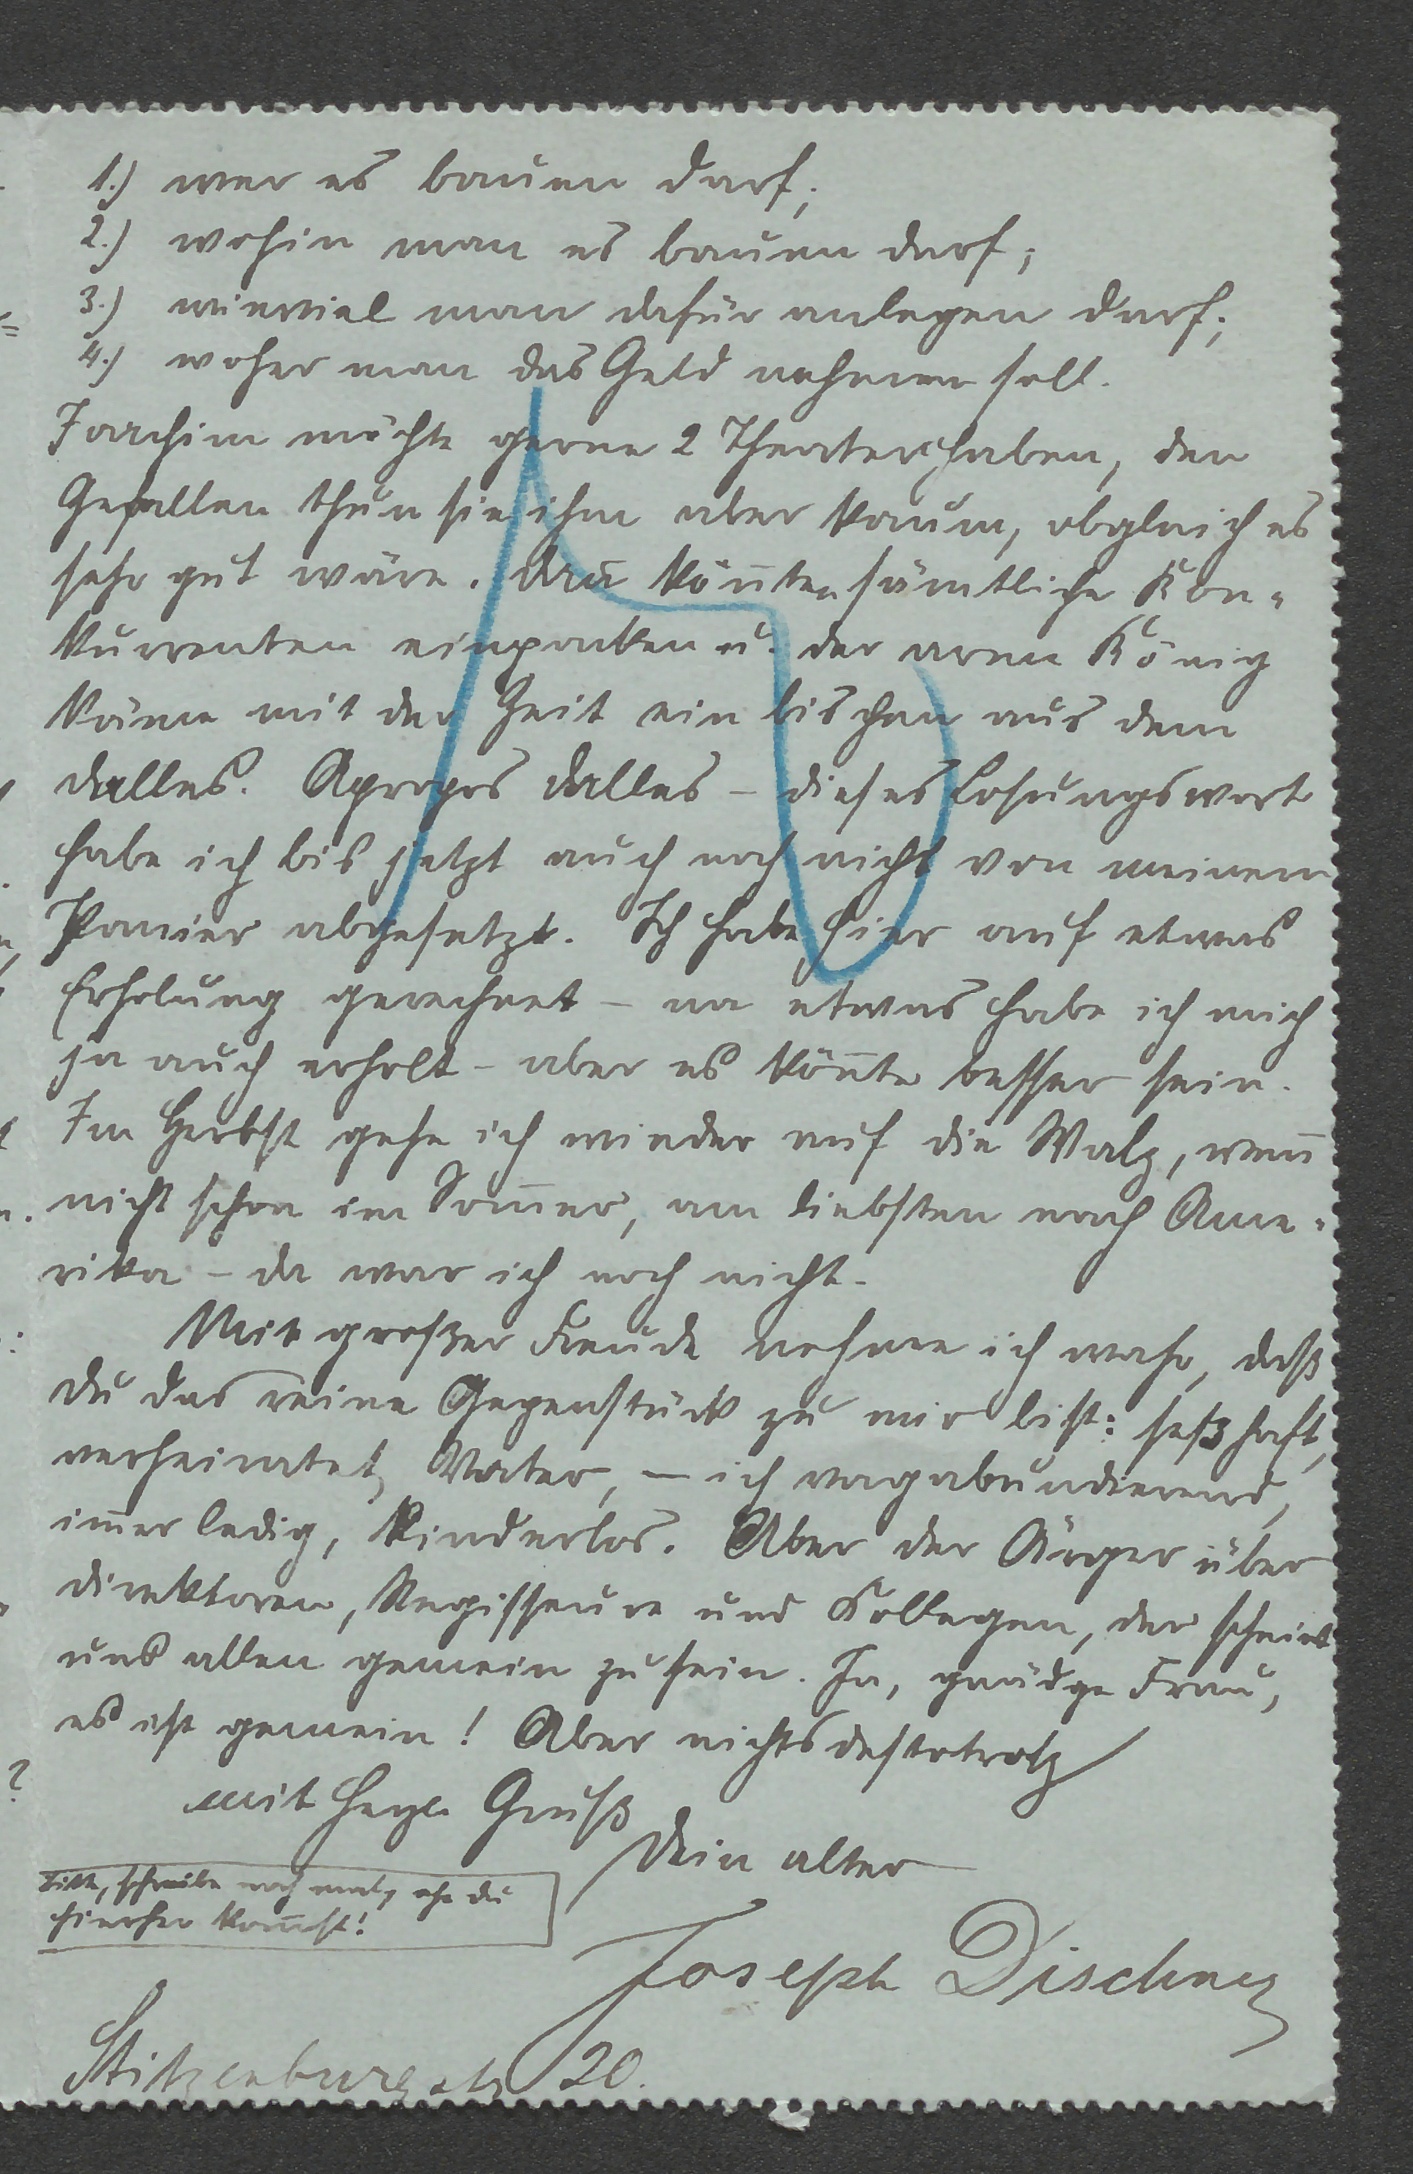 1.) wer es bauen darf;
2.) wohin man es bauen darf;
3.) wieviel man dafür anlegen darf;
4.) woher man das Geld nehmen soll.
Joachim möchte gerne 2 Theater haben, den
Gefallen thun sie ihm aber kaum, obgleich es
sehr gut wäre. Da könnten sämtliche Kon-
kurrenten einpacken u. der arme König
käme mit der Zeit ein bischen aus dem
Dalles. Apropos Dalles – dieses Losungswort
habe ich bis jetzt auch noch nicht von meinem
Panier abgesetzt. Ich habe hier auf etwas
Erholung gerechnet – na etwas habe ich mich
ja auch erholt – aber es kön̄te besser sein.
Im Herbst gehe ich wieder auf die Walz, wen̄
nicht schon im Som̄er, am liebsten nach Ame-
rika – da war ich noch nicht.
Mit großer Freude nehme ich wahr, daß
Du das reine Gegenstück zu mir bist: seßhaft,
verheiratet, Vater, – ich vagabundierend,
im̄er ledig, kinderlos. Aber der Ärger über
Direktoren, Regisseure und Kollegen, der scheint
uns allen gemein zu sein. Ja, gnädge Frau,
es ist gemein! Aber nichtsdestotrotz
mit herzl. Gruß
Dein alter
Bitte, schreibe noch mal, ehe Du
hierher kom̄st!
Joseph Dischner
Stitzenburgstr 20.